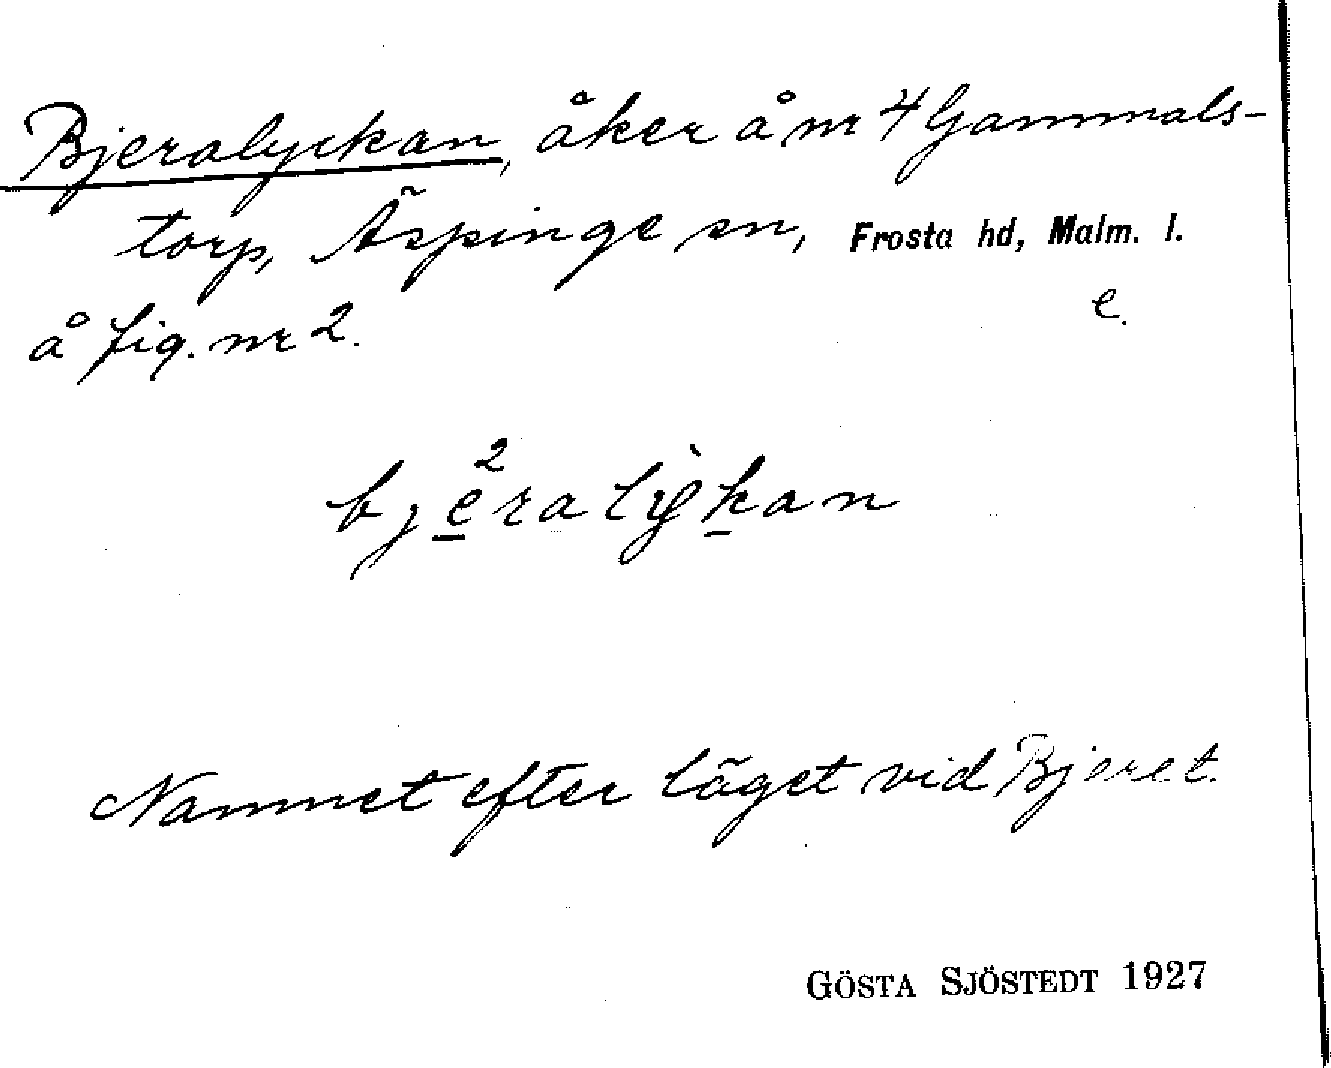 Bjeralyckan, åker å nr 4 Gammals-
torp, Äspinge sn, Frosta hd, Malm. l.
e.
å fig. nr 2.
bjeralỳkan
2
Namnet efter läget vid Bjeret.
GÖSTA SJÖSTEDT 1927